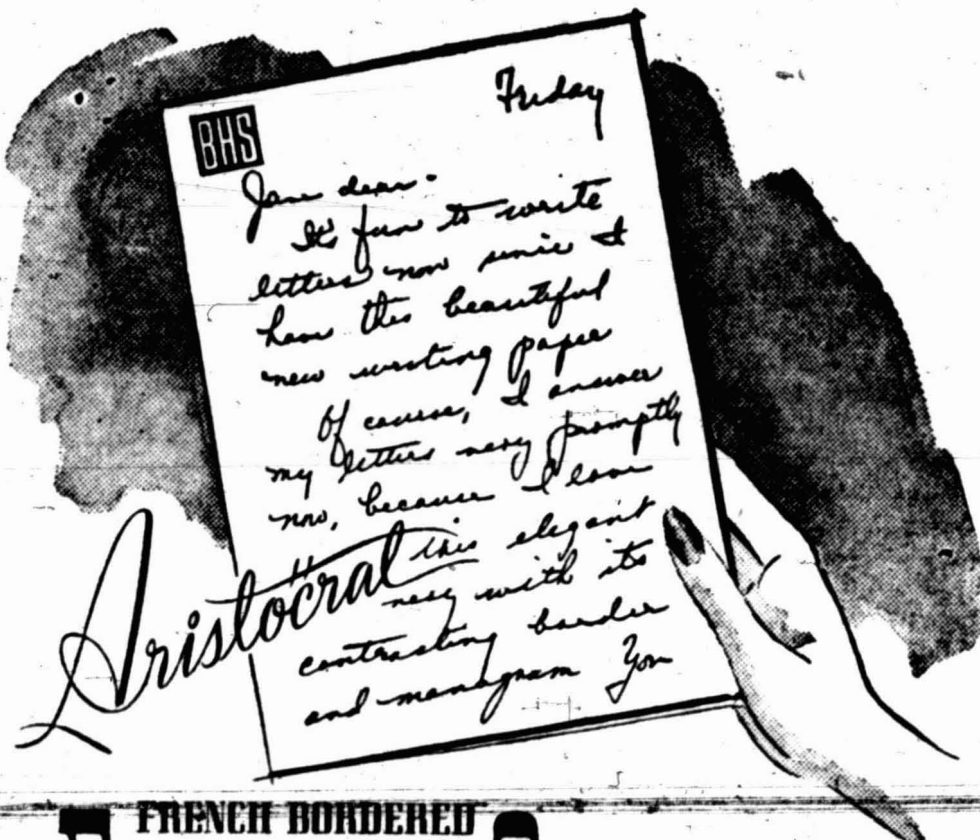 Friday
BHS
Jane dear-
It's fun to write
letters now since I
have this beautiful
new writing paper
Of course, I answer
my letters very promptly
now, because I love
this elegant
Aristocrat
with its
contrasting border
and monogram You
FRENCH BORDERED